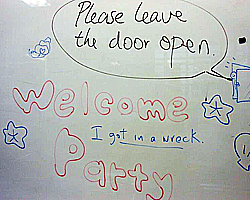 Please leave
the door open.
Welcome
I got in a wreck.
Party